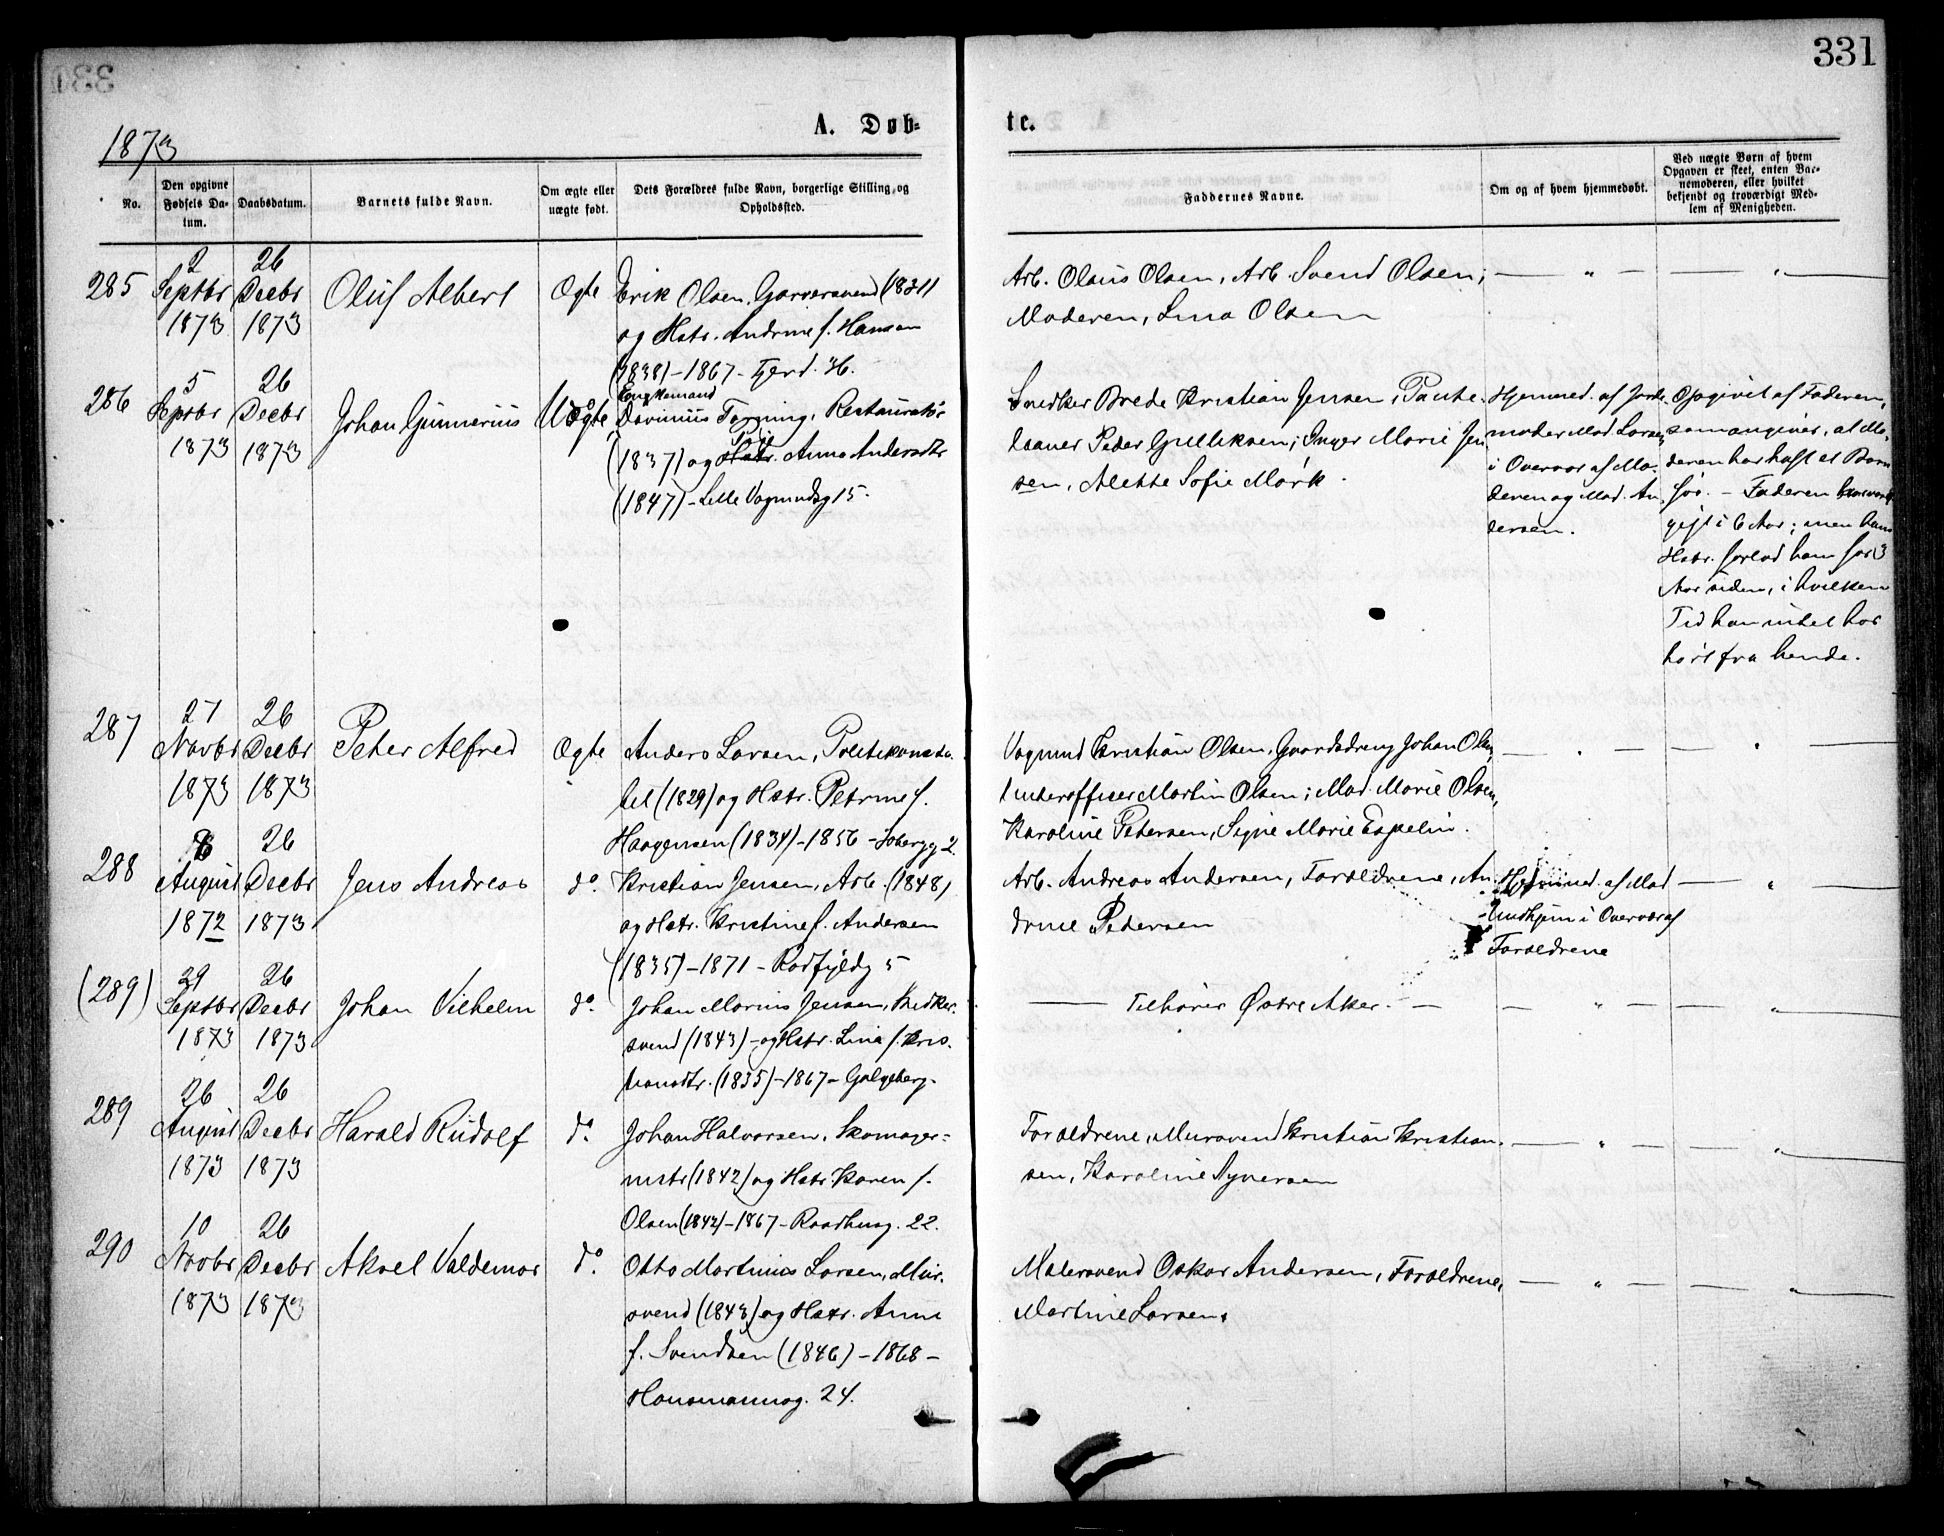 331
A. Døb-
te.
1873
No.
Den opgivne Fødsels Da-tum.
Daabsdatum.
Barnets fulde Navn.
Om ægte eller uægte født.
Dets Forældres fulde Navn, borgerlige Stilling, og Opholdssted.
Faddernes Navne.
Om og af hvem hjemmedøbt.
Ved uægte Børn af hvem Opgaven er skeet, enten Bar-nemoderen, eller hvilket bekjendt og troværdigt Med-lem af Menigheden.
285
2 Septbr 1873
26 Decbr 1873
Oluf Albert
Ægte
Erik Olsen, Garversvend (1831)
og Hstr. Andrine f. Hansen
(1838) – 1867 – Fjerd. 36.
Arb. Olaus Olsen, Arb. Svend Olsen;
Moderen, Lina Olsen
286
5 Septbr 1873
26 Decbr 1873
Johan Gunnerius
Uægte
Davinius Tagning, Restauratør
(1837) og Hstr. Anna Andersdtr
(1847) – Lille Vognmdsg 15.
Snedker Brede Kristian Jensen, Pante-
laaner Peder Gulliksen; Inger Marie Jen
sen, Alette Sofie Mørk.
Hjemmed. af Jorde-
moder Mad Larsen
i Overvær af Mo-
deren og Mad. An
dersen.
Opgivet af Faderen,
som angiver, at Mo-
deren har havt et Barn
før. – Faderen har været
gift i 6 Aar; men hans
Hstr. forlod ham for 3
Aar siden, i hvilken
Tid han intet har
hørt fra hende.
287
27 Novbr 1873
26 Decbr 1873
Peter Alfred
Ægte
Anders Larsen, Politikonsta-
bel (1829) og Hstr. Petrine f.
Haagensen (1834) – 1856 –
Vognmd Kristian Olsen, Gaardsdreng Johan Olsen,
Underofficer Martin Olsen; Mad. Marie Olsen,
Karoline Pedersen, Signe Marie Espelin.
288
August 1872
26 Decbr 1873
Jens Andreas
do.
Kristian Jensen, Arb. (1848)
og Hstr. Kristine f. Andersen
(1835) – 1871 – Rødfyldg 5
Arb. Andreas Andersen, Forældrene, An
drine Pedersen
Hjemmed. af Mad
Undhjem i Overvær af
Forældrene
(289)
29 Septbr 1873
26 Decbr 1873
Johan Vilhelm
do.
Johan Marius Jensen, Snedker-
svend (1843) – og Hstr. Lina f. Kris-
tiansdtr. (1835) – 1867 – Galgeberg.
Tilhører Østre Aker.
289
26 August 1873
26 Decbr 1873
Harald Rudolf
do.
Johan Halvorsen, Skomager-
mstr (1842) og Hstr Karen f.
Olsen (1842) – 1867 – Raadhusg. 22.
Forældrene, Mursvend Kristian Kristian-
sen, Karoline Syversen
290
10 Novbr 1873
26 Decbr 1873
Aksel Valdemar
do.
Otto Martinius Larsen, Mur-
svend (1843) og Hstr. Anne
f. Svendsen (1846) – 1868 –
Hausmannsg. 24.
Malersvend Oskar Andersen, Forældrene,
Martine Larsen.